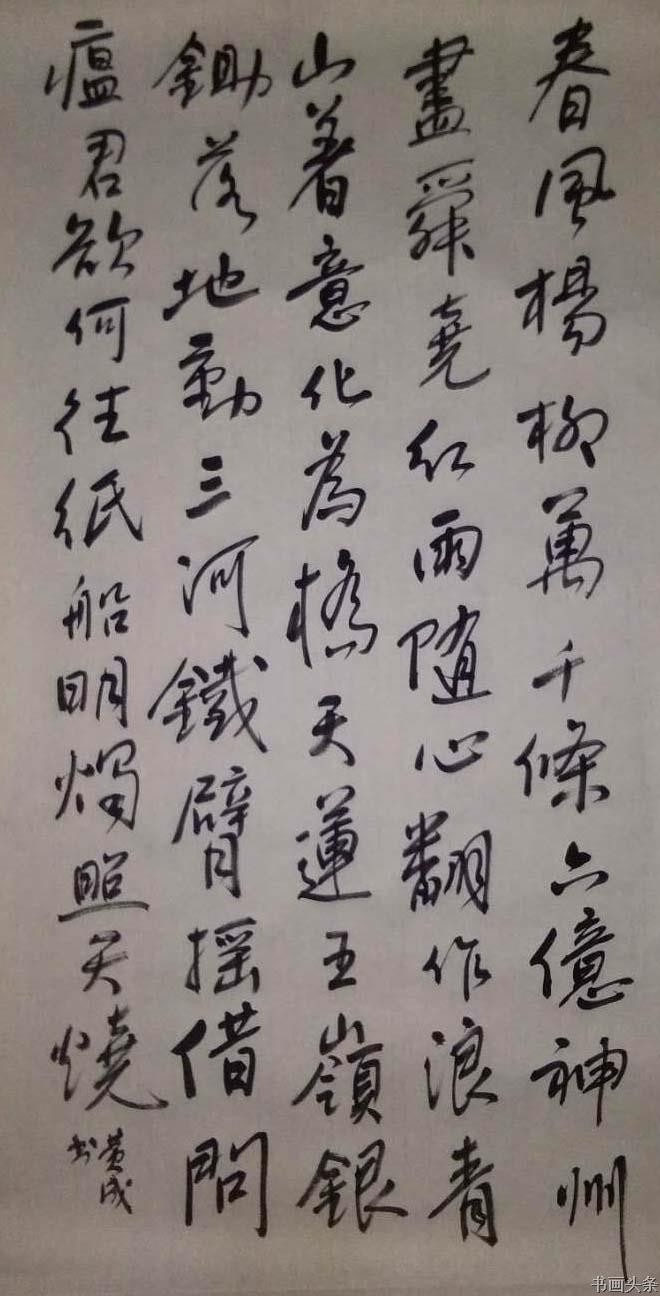 春風楊柳萬千條六億神州
盡舜堯紅雨随心翻作浪青
山着意化為橋天蓮五嶺銀
鋤落地動三河鐵臂摇借問
瘟君欲何往紙船明燭照天燒
黄成
书
书画头条